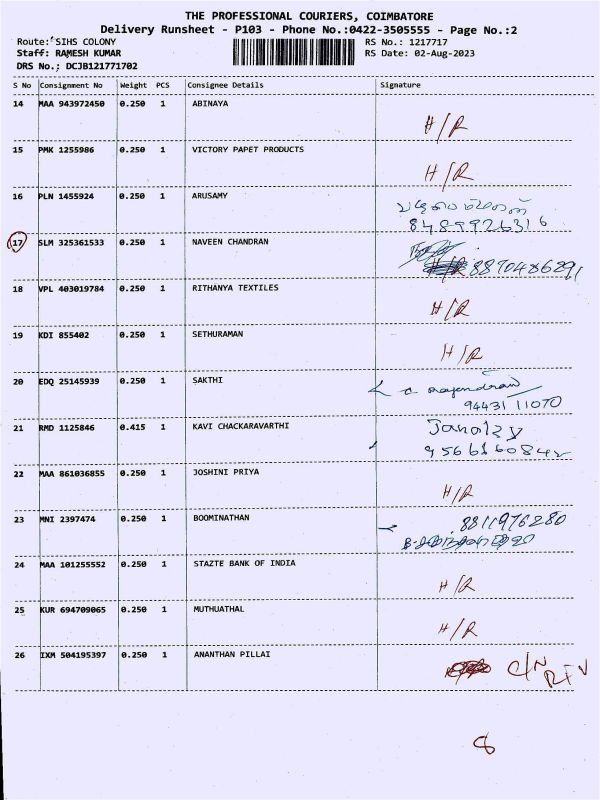 THE PROFESSIONAL COURIERS, COIMBATORE
Delivery Runsheet - P103 - Phone No.:0422-3505555 - Page No.:2
Route: SIHS COLONY RS No.: 1217717
Staff: RAMESH KUMAR RS Date: 02-Aug-2023
DRS No.; DCJB121771702
S No Consignment No Weight PCS Consignee Details Signature
14 MAA 943972450 0.250 1 ABINAYA
H/R
15 PMK 1255986 0.250 1 VICTORY PAPET PRODUCTS
H/R
16 PLN 1455924 0.250 1 ARUSAMY
8489926316
17 SLM 325361533 0.250 1 NAVEEN CHANDRAN
8870486291
18 VPL 403019784 0.250 1 RITHANYA TEXTILES
H/R
19 KDI 855402 0.250 1 SETHURAMAN
H/R
20 EDQ 25145939 0.250 1 SAKTHI
rajendran
94431 11070
21 RMD 1125846 0.415 1 KAVI CHACKARAVARTHI
22 MAA 861036855 0.250 1 JOSHINI PRIYA
H/R
23 MNI 2397474 0.250 1 BOOMINATHAN
8811976280
24 MAA 101255552 0.250 1 STAZTE BANK OF INDIA
H/R
25 KUR 694709065 0.250 1 MUTHUATHAL
H/R
26 IXM 504195397 0.250 1 ANANTHAN PILLAI
C/N
RTV
8